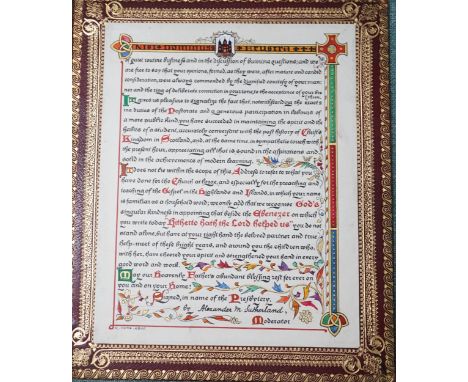 of your routine business and in the discussion of burning questions; and we
are free to say that your opinions, formed, as they were, after mature and candid
consideration, were always commended by the dignified courtesy of your manner
and the ring of deliberate conviction in your reasons for the acceptance of your
It gives us pleasure to signalize the fact that, notwithstanding the exact
duties of the Pastorate and a generous participation in labours of
a more public kind, you have succeeded in maintaining the spirit and the
habits of a student, accurately conversant with the past history of Christ's
Kingdom in Scotland, and, at the same time, in sympathetic touch with
the present hour, appreciating all that is sound in the aspirations and
solid in the achievements of modern learning.
It does not lie within the scope of this Address to refer to what you
have done for the Church at large, and especially for the preaching and
teaching of the Gospel in the Highlands and Islands, in which your name
is familiar as a household word; we only add that we recognise God's
singular kindness in appointing that beside the Ebenezer on which
you write today "Hitherto hath the Lord helped us" you do not
stand alone, but have at your right hand the beloved partner and true
help-meet of these bright years, and around you the children who,
with her, have cheered your spirit and strengthened your hand in every
good word and work.
May our Heavenly Father's abundant blessing rest for ever on
you and on your home!
Signed, in name of the Presbytery,
by Alexander M. Sutherland,
Moderator